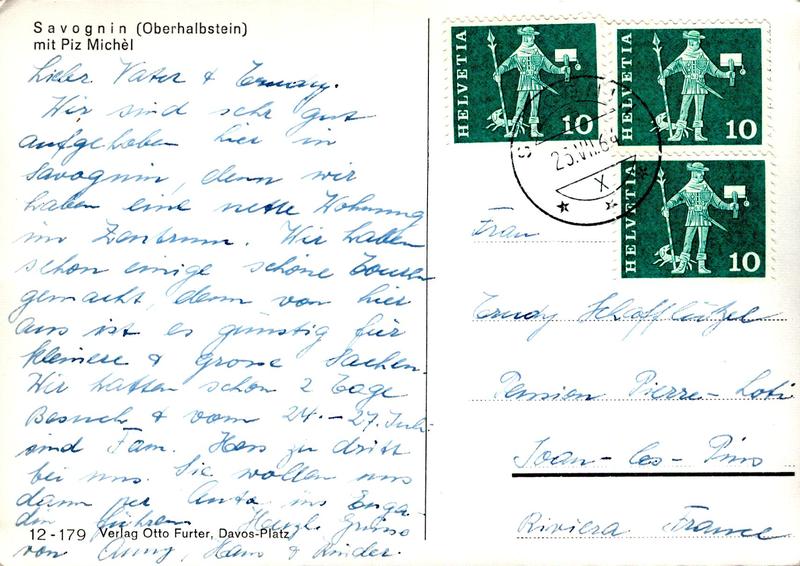 Savognin (Oberhalbstein)
mit Piz Michèl
Lieber Vater & Trudy.
Wir sind sehr gut
aufgehoben hier in
Savognin, denn wir
haben eine nette Wohnung
im Zentrum. Wir haben
schon einige schöne Touren
gemacht, denn von hier
aus ist es günstig für
kleinere & grosse Sachen.
Wir hatten schon 2 Tage
Besuch & vom 24.-27. Juli
sind Fam. Hess zu dritt
bei uns. Sie wollen uns
dann per Auto ins Enga-
din führen. Herzl. Grüsse
von Anny, Hans & Kinder.
12-179 Verlag Otto Furter, Davos-Platz
HELVETIA 10
HELVETIA 10
HELVETIA 10
25.VII.6
X
Frau
Trudy Schafflützel
Pension Pierre-Loti
Joan-les-Pins
Riviera France